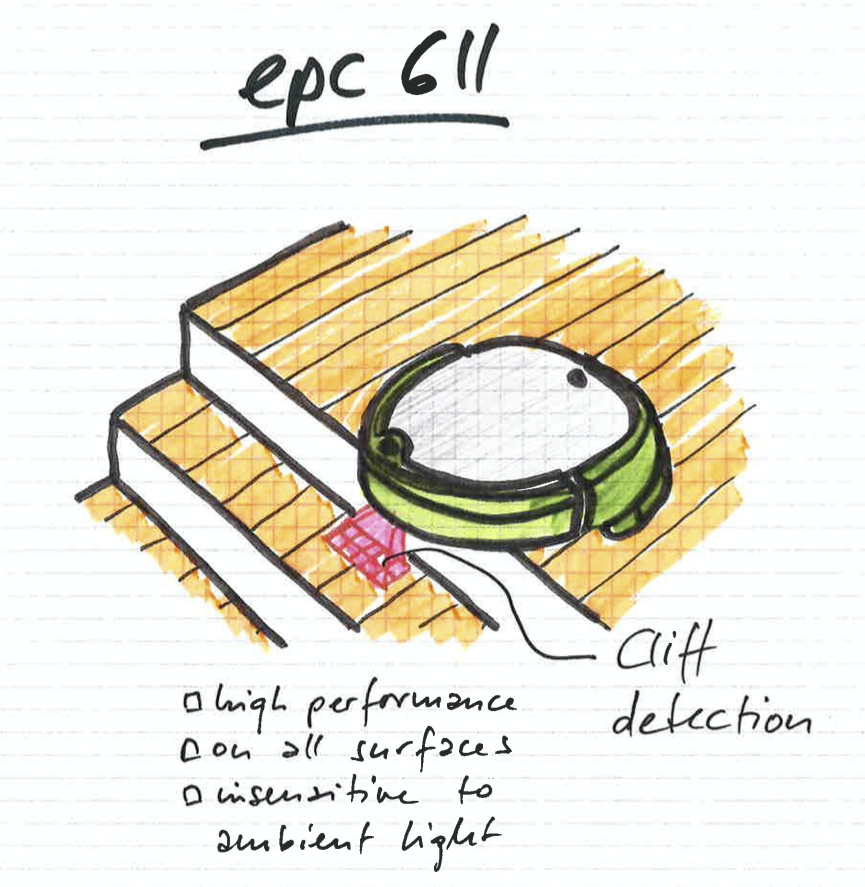 epc 611
Cliff
detection
□ high performance
□ on all surfaces
□ insensitive to
ambient light